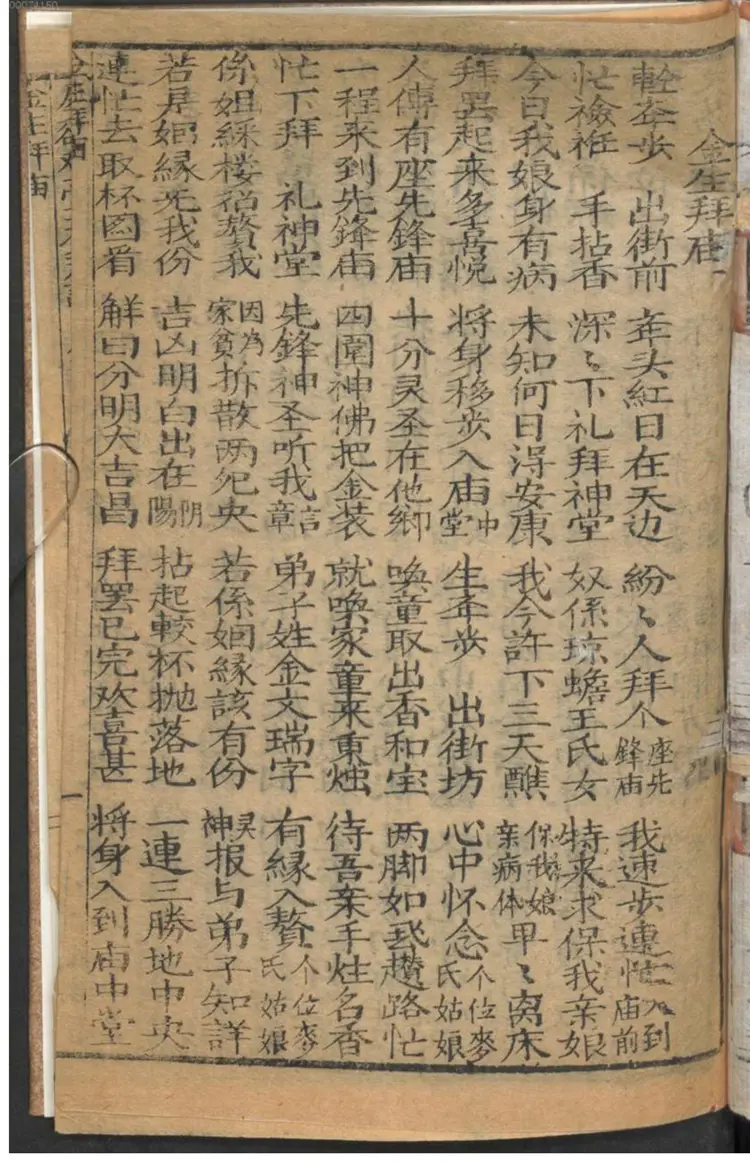 金生拜庙
輕举步　出街前　举头紅日在天边　紛〻人拜个座先鋒庙　我速步連忙入到庙前
忙襝衽　手拈香　深〻下礼拜神堂　奴係琼蟾王氏女　特来求保我亲娘
今日我娘身有病　未知何日淂安康　我今許下三天醮　保我娘亲病体早〻离床
拜罢起来多喜悦　将身移步入庙中堂　生举步　出街坊　心中怀念个位麥氏姑娘
人傳有座先鋒庙　十分灵圣在他鄉　喚童取出香和宝　两脚如飛趱路忙
一程来到先鋒庙　四圍神佛把金装　就喚家童来秉烛　待吾亲手炷名香
忙下拜　礼神堂　先鋒神圣听我言章　弟子姓金文瑞字　有緣入赘个位麥氏姑娘
係姐綵楼招赘我　因为家貧拆散两夗央　若係姻緣該有份　灵神报与弟子知詳
若是姻緣无我份　吉凶明白出在阴陽　拈起較杯抛落地　一連三勝地中央
連忙去取杯看　解曰分明大吉昌　拜罢已完欢喜甚　将身入到庙中堂
金生拜庙